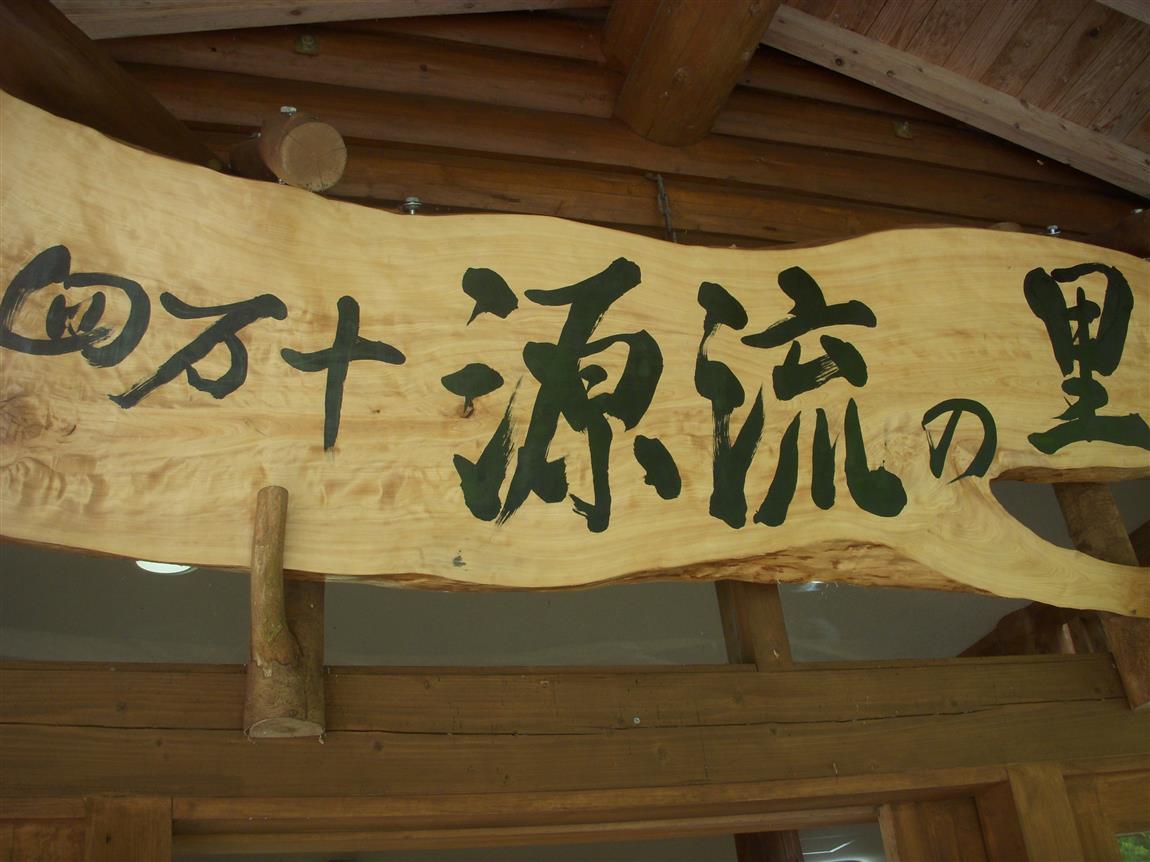 四万十源流の里